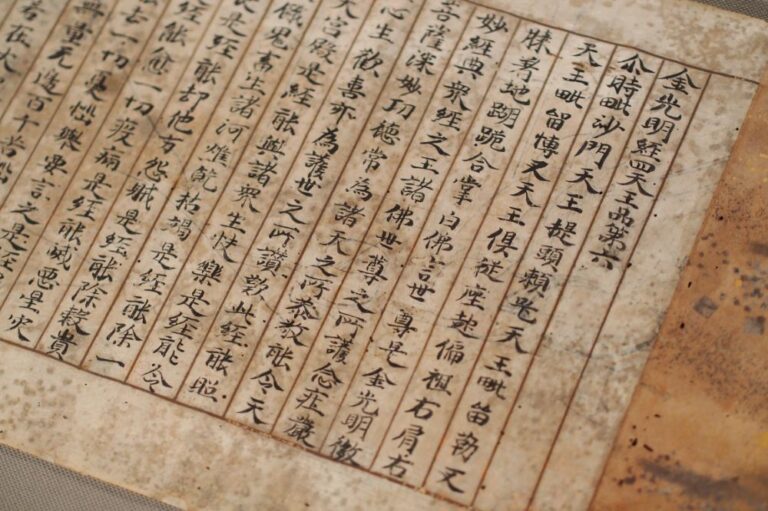 金光明經四天王品第六
尒時毗沙門天王提頭賴吒天王毗留勒叉
天王毗留博叉天王俱從座起偏袒右肩右
膝著地胡跪合掌白佛言世尊是金光明微
妙經典衆經之王諸佛世尊之所護念莊嚴
菩薩深妙功德常為諸天之所恭敬能令天
心生歡喜亦為護世之所讚歎此經能照
天宮殿是經能與諸衆生快樂是經能令
餓鬼畜生諸河燋乾枯竭是經能除一
是經能却他方怨賊是經能除穀貴
經能愈一切疫病是經能滅惡星灾
一切憂惱舉要言之是經
無量无邊百千苦惱